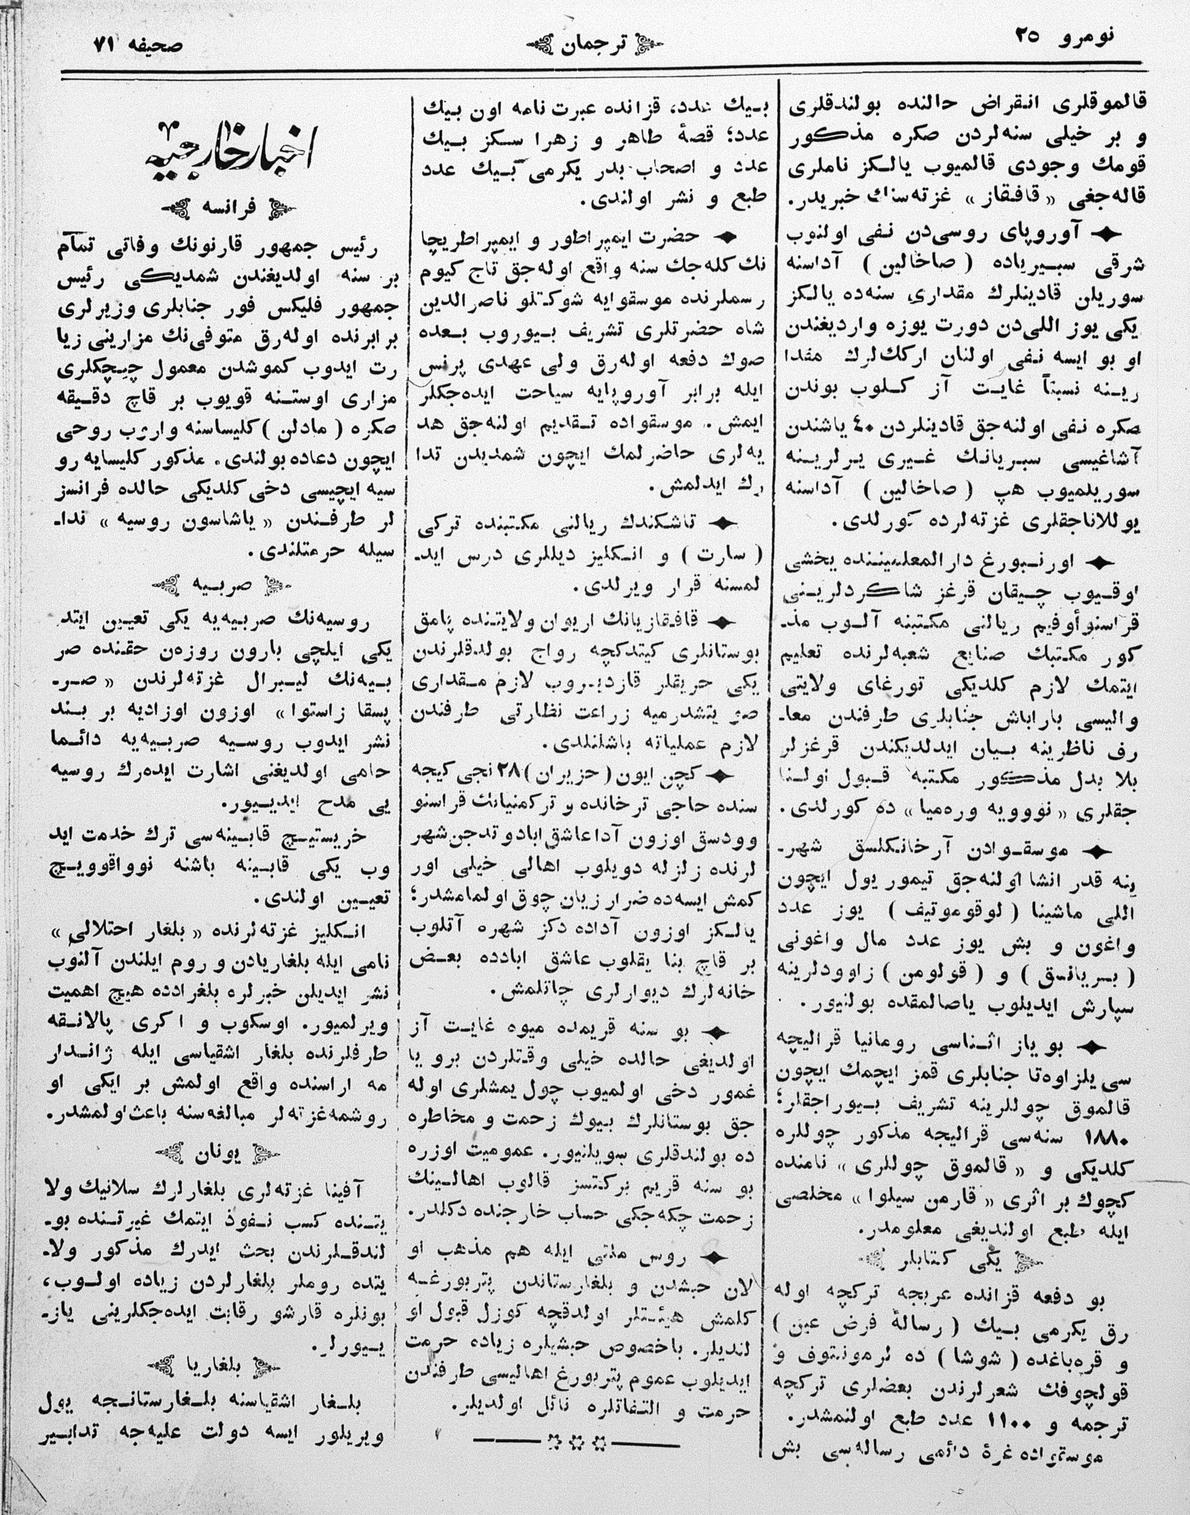 نومرو ٢٥
ترجمان
صحیفه ٧١
قالموقلری انقراض حالنده بولندقلری
و بر خیلی سنه‌لردن صکره مذکور
قومك وجودی قالمیوب یالکز ناملری
قاله‌جغی « قافقاز » غزته‌سنك خبریدر.
آوروپای روسی‌دن نفی اولنوب
شرقی سبیریاده ( صاخالین ) آداسنه
سوریلن قادینلرك مقداری سنه‌ده یالکز
یکی یوز اللی‌دن دورت یوزه واردیغندن
او بو ایسه نفی اولنان ارکك‌لرك مقدا
رینه نسبتاً غایت آز کلوب بوندن
صکره نفی اولنه‌جق قادینلردن ٤٠ یاشندن
آشاغیسی سبریانك غیری یرلرینه
سوریلمیوب هپ ( صاخالین ) آداسنه
یوللاناجقلری غزته‌لرده کورلدی.
اورنبورغ دارالمعلمیننده یخشی
اوقیوب چیقان قرغز شاکردلرینی
قراسنوأوفیم ریالنی مکتبنه آلوب مذ
کور مکتبك صنایع شعبه‌لرنده تعلیم
ایتمك لازم کلدیکی تورغای ولایتی
والیسی باراباش جنابلری طرفندن معا-
رف ناظرینه بیان ایدلدیکندن قرغزلر
بلا بدل مذکور مکتبه قبول اولنا
جقلری « نوویه وره‌میا » ده کورلدی.
موسقوادن آرخانکلسق شهر-
ینه قدر انشا اولنه‌جق تیمور یول ایچون
اللی ماشینا ( لوقوموتیف ) یوز عدد
واغون و بش یوز عدد مال واغونی
( بریانسق ) و ( قولومن ) زاوودلرینه
سپارش ایدیلوب یاصالمقده بولنیور.
بو یاز اثناسی رومانیا قرالیچه
سی یلزاوه‌تا جنابلری قمز ایچمك ایچون
قالموق چوللرینه تشریف بیوراجقلر؛
١٨٨٠ سنه‌سی قرالیجه مذکور چوللره
کلدیکی و « قالموق چوللری » نامنده
کچوك بر اثری « قارمن سیلوا » مخلصی
ایله طبع اولندیغی معلومدر.
یکی کتابلر
بو دفعه قزانده عربجه ترکچه اوله
رق یکرمی بیك ( رسالۀ فرض عین )
و قره‌باغده ( شوشا ) ده لرمونتوف و
قولچوفك شعرلرندن بعضلری ترکچه
ترجمه و ١١٠٠ عدد طبع اولنمشدر.
موسقواده غرۀ دائمی رساله‌سی بش
بیك عدد، قزانده عبرت نامه اون بیك
عدد؛ قصۀ طاهر و زهرا سکز بیك
عدد و اصحاب بدر یکرمی بیك عدد
طبع و نشر اولندی.
حضرت ایمپراطور و ایمپراطریچا
نك کله‌جك سنه واقع اوله‌جق تاج کیوم
رسملرنده موسقوایه شوکتلو ناصرالدین
شاه حضرتلری تشریف بیوروب بعده
صوك دفعه اوله‌رق ولی عهدی پرنس
ایله برابر آوروپایه سیاحت ایده‌جکلر
ایمش. موسقواده تقدیم اولنه‌جق هد
یه‌لری حاضرلمك ایچون شمدیدن تدا
رك ایدلمش.
تاشکندك ریالنی مکتبنده ترکی
( سارت ) و انکلیز دیللری درس اید-
لمسنه قرار ویرلدی.
قافقازیانك اریوان ولایتنده پامق
بوستانلری کیتدکچه رواج بولدقلرندن
یکی حریقلر قازدیروب لازم مقداری
صو یتشدرمیه زراعت نظارتی طرفندن
لازم عملیاته باشلنلدی.
کچن ایون ( حزیران ) ٢٨ نجی کیجه
سنده حاجی ترخانده و ترکمنیانك قراسنو
وودسق اوزون آدا عاشق اباد و تدجن شهر
لرنده زلزله دویلوب اهالی خیلی اور
کمش ایسه‌ده ضرار زیان چوق اولمامشدر؛
یالکز اوزون آداده دکز شهره آتلوب
بر قاچ بنا یقلوب عاشق ابادده بعض
خانه‌لرك دیوارلری چاتلمش.
بو سنه قریمده میوه غایت آز
اولدیغی حالده خیلی وقتلردن برو یا
غمور دخی اولمیوب چول یمشلری اوله
جق بوستانلرك بیوك زحمت و مخاطره
ده بولندقلری سویلنیور. عمومیت اوزره
بو سنه قریم برکتسز قالوب اهالینك
زحمت چکه‌جکی حساب خارجنده دکلدر.
روس ملتی ایله هم مذهب او
لان حبشدن و بلغارستاندن پتربورغه
کلمش هیئتلر اولدقچه کوزل قبول او
لندیلر. باخصوص حبشیلره زیاده حرمت
ایدیلوب عموم پتربورغ اهالیسی طرفندن
حرمت و التفاتلره نائل اولدیلر.
اخبار خارجیه
فرانسه
رئیس جمهور قارنونك وفاتی تمام
بر سنه اولدیغندن شمدیکی رئیس
جمهور فلیکس فور جنابلری وزیرلری
برابرنده اوله‌رق متوفی‌نك مزارینی زیا
رت ایدوب کموشدن معمول چیچکلری
مزاری اوستنه قویوب بر قاچ دقیقه
صکره ( مادلن ) کلیساسنه واروب روحی
ایچون دعاده بولندی. مذکور کلیسایه رو
سیه ایچیسی دخی کلدیکی حالده فرانسز
لر طرفندن « یاشاسون روسیه » ندا-
سیله حرمتلندی.
صربیه
روسیه‌نك صربیه‌یه یکی تعیین ایتد
یکی ایلچی بارون روزه‌ن حقنده صر
بیه‌نك لیبرال غزته‌لرندن « صر-
پسقا زاستوا » اوزون اوزادیه بر بند
نشر ایدوب روسیه صربیه‌یه دائما
حامی اولدیغنی اشارت ایده‌رك روسیه
یی مدح ایدییور.
خریستیچ قابینه‌سی ترك خدمت اید
وب یکی قابینه باشنه نوواقوویچ
تعیین اولندی.
انکلیز غزته‌لرنده « بلغار احتلالی »
نامی ایله بلغاریادن و روم ایلندن آلنوب
نشر ایدیلن خبرلره بلغرادده هیچ اهمیت
ویرلمیور. اوسکوب و اکری پالانقه
طرفلرنده بلغار اشقیاسی ایله ژاندار
مه اراسنده واقع اولمش بر ایکی او
روشمه غزته‌لر مبالغه‌سنه باعث اولمشدر.
یونان
آفینا غزته‌لری بلغارلرك سلانیك ولا
یتنده کسب نفوذ ایتمك غیرتنده بو-
لندقلرندن بحث ایدرك مذکور ولا-
یتده روملر بلغارلردن زیاده اولوب،
بونلره قارشو رقابت ایده‌جکلرینی یاز-
یيورلر.
بلغاریا
بلغار اشقیاسنه بلغارستانجه یول
ویریلور ایسه دولت علیه‌جه تدابیر